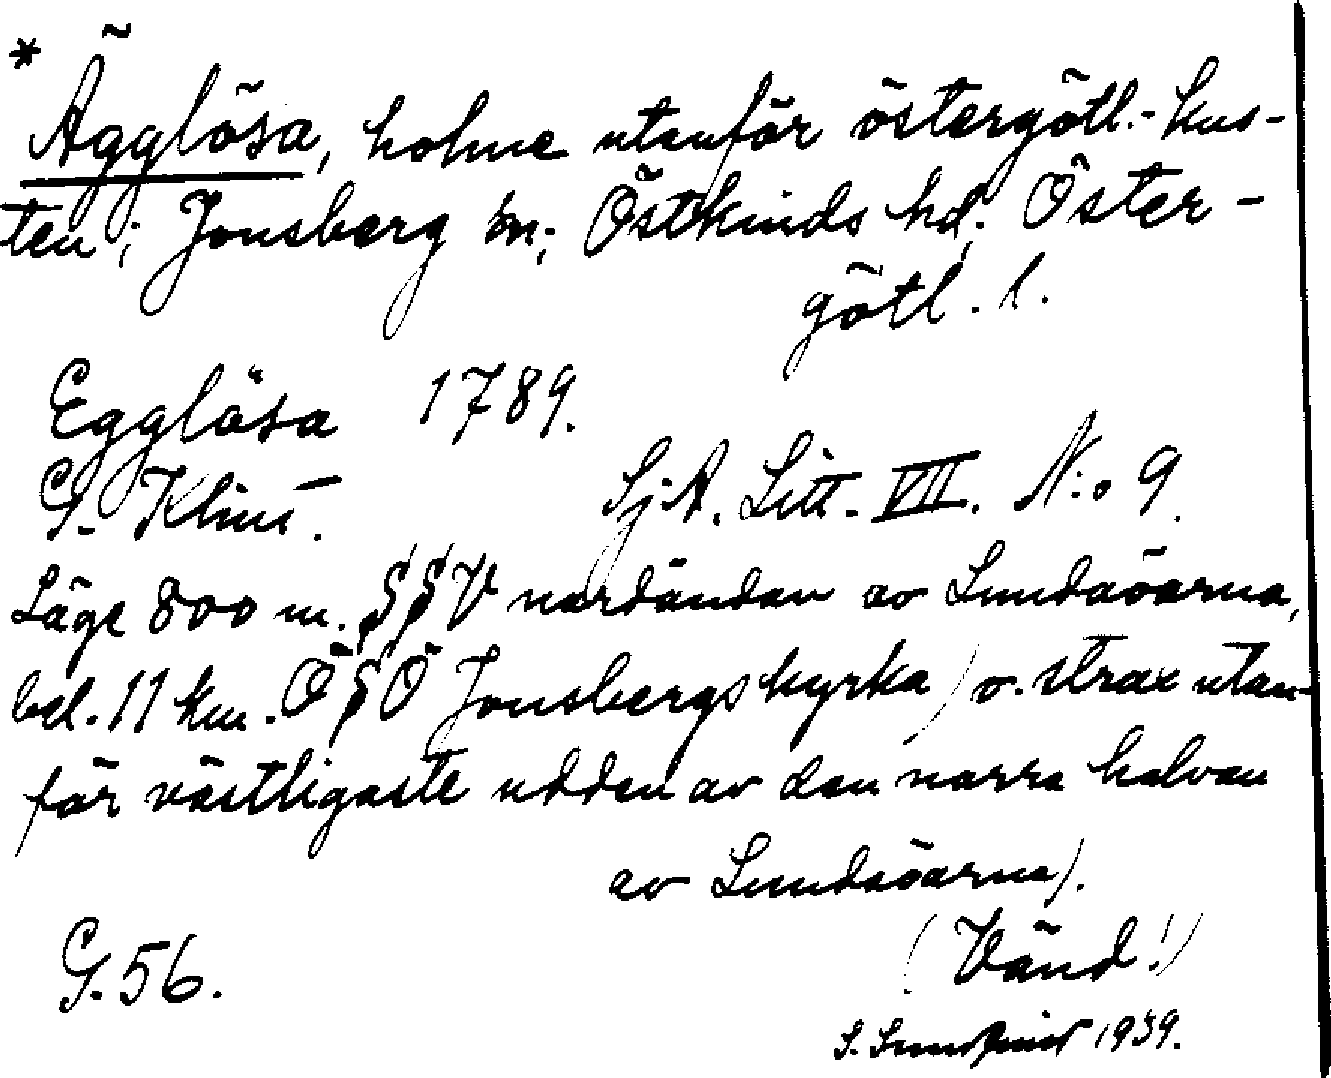 * Ägglösa, holme utanför östergötl.-kus-
ten; Jonsberg sn; Östkinds hd; Öster-
götl. l.
Egglösa 1789.
G. Klint. Sj.A. Litt. VII. N:o 9.
Läge 800 m. SSV nordändan av Lundaöarna,
bel. 11 km. ÖSÖ Jonsbergs kyrka) o. strax utan-
för västligaste udden av den norra halvan
av Lundaöarna).
(Vänd!)
G. 56.
S. 1939.